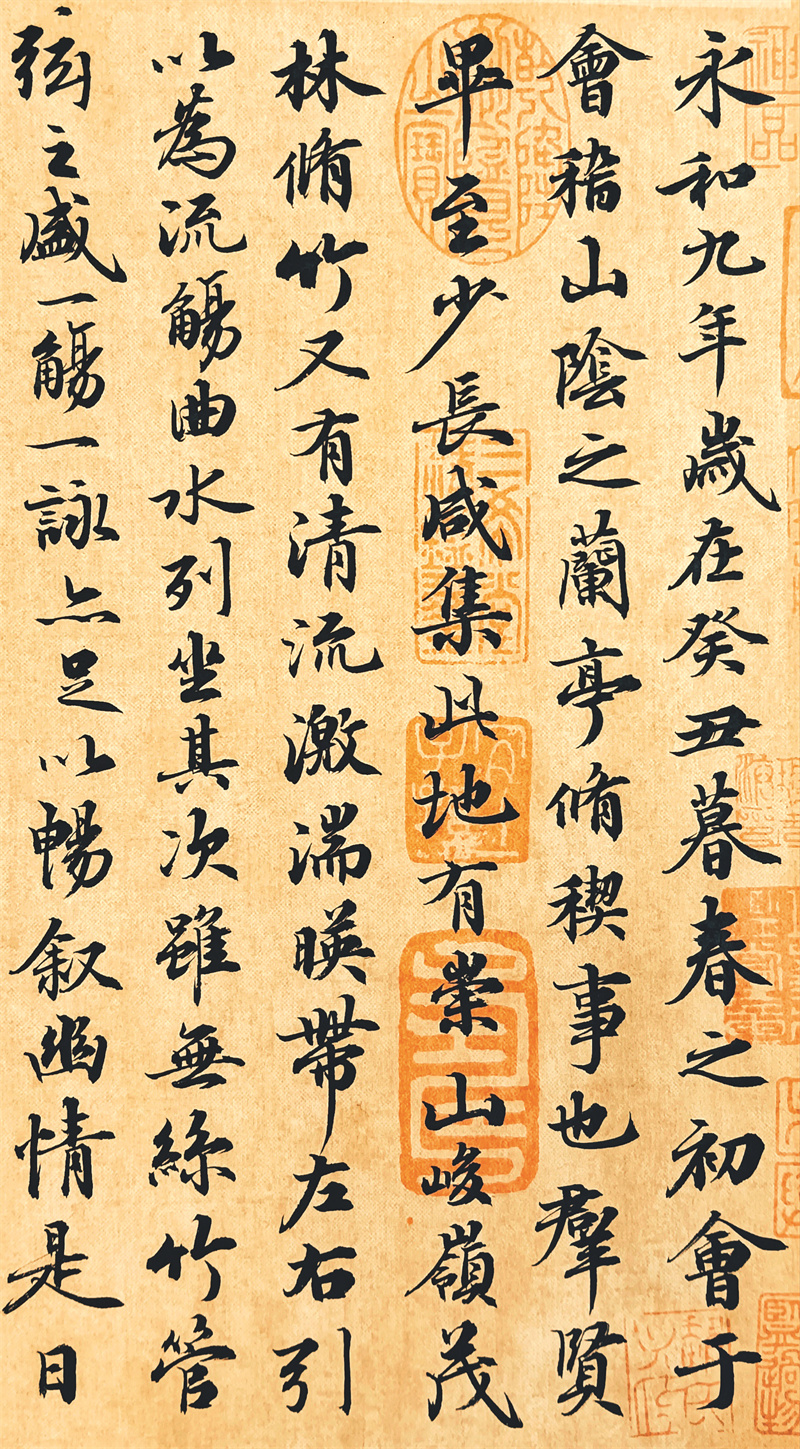 永和九年歲在癸丑暮春之初會于
會稽山陰之蘭亭脩稧事也羣賢
畢至少長咸集此地有崇山峻嶺茂
林脩竹又有清流激湍暎帶左右引
以為流觴曲水列坐其次雖無絲竹管
弦之盛一觴一詠亦足以暢叙幽情是日
神品